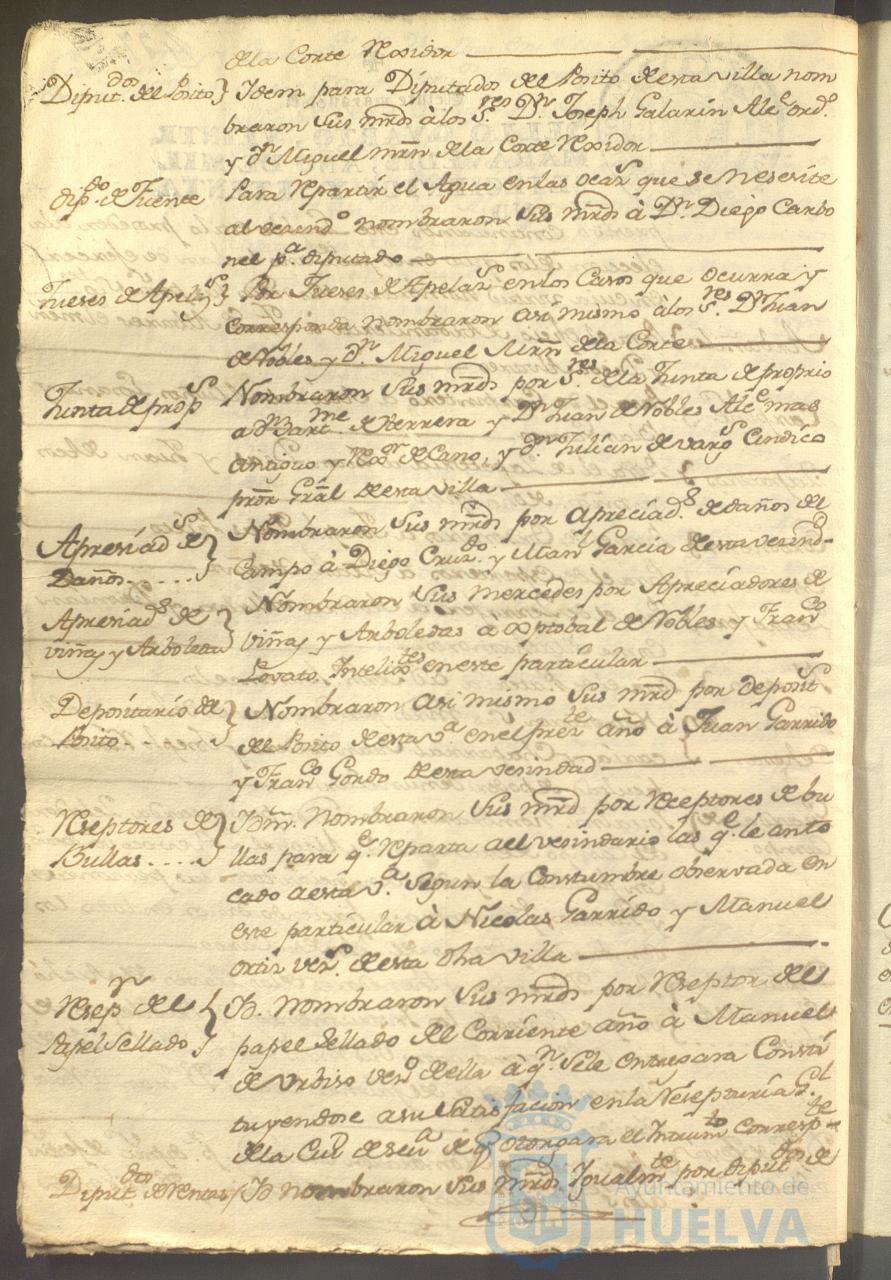 dela Corte Rexidor
Diput.dos del Posito } Idem para Diputados del Posito de esta villa nom
braron sus mrds à los S.res D.n Joseph Galarin Alc.e ord.o
y d.n Miguel mrn dela Corte Rexidor
dip.do de Fuente Para Repartir el Agua en las ocas.s que se nesesite
al vesind.o nombraron sus mrds à D.n Diego Carbo
nel p.a diputado
Jueses de Apel.s } Por Jueses de Apelas.n en los Casos que ocurra y
Corresponda nombraron asi mismo à los S.res D.n Juan
de Nobles y d.n Miguel Mrn dela Corte
Junta de prop.s Nombraron sus mrds por S.res dela Junta de proprio
a d.n Bart.me de Herrera y D.n Juan de Nobles Alc.e mas
antiguo y de Cano, y d.n Julian de varg.s Cindico
pror Gral de esta villa
Apresiad.s de } Nombraron sus mrds por Apreciad.s de daños del
Daños..... Campo à Diego Cruz.do y Man.l Garcia de esta vesind.
Apresiad.s de } Nombraron sus mercedes por Apreciadores de
viñas y Arboledas viñas y Arboledas à Xptobal de Nobles y Fran.co
Lovato Intelig.tes en este particular
Depositario del } Nombraron asi mismo sus mrd por deposit
Posito. del Posito de esta v.a en el pres.te año à Juan Garrido
y Fran.co Gordo de esta vesindad
Reseptores de } Ittn. Nombraron sus mrd por Receptores de bu
Bullas.... llas para q.e Reparta al vesindario las q.e le an to
cado a esta v.a segun la Constumbre observada en
este particular à Nicolas Garrido y Manuel
ortiz ves.s de esta dha villa
Resep.r del } Ið. nombraron sus mrds por Reseptor del
Papel Sellado papel sellado del Corriente año à Manuel
de Urbiso ves.o de ella à q.n se le entregara Consti
tuyendose a su satisfacion en la Resepturia G.l
dela Ciu.d de sev.a de q.e otorgara el Intrum.to Corresp.te
Diput.dos de Rentas / Ið nombraron sus mrds Igualm.te por diput.dos de
Ayuntamiento de
HUELVA